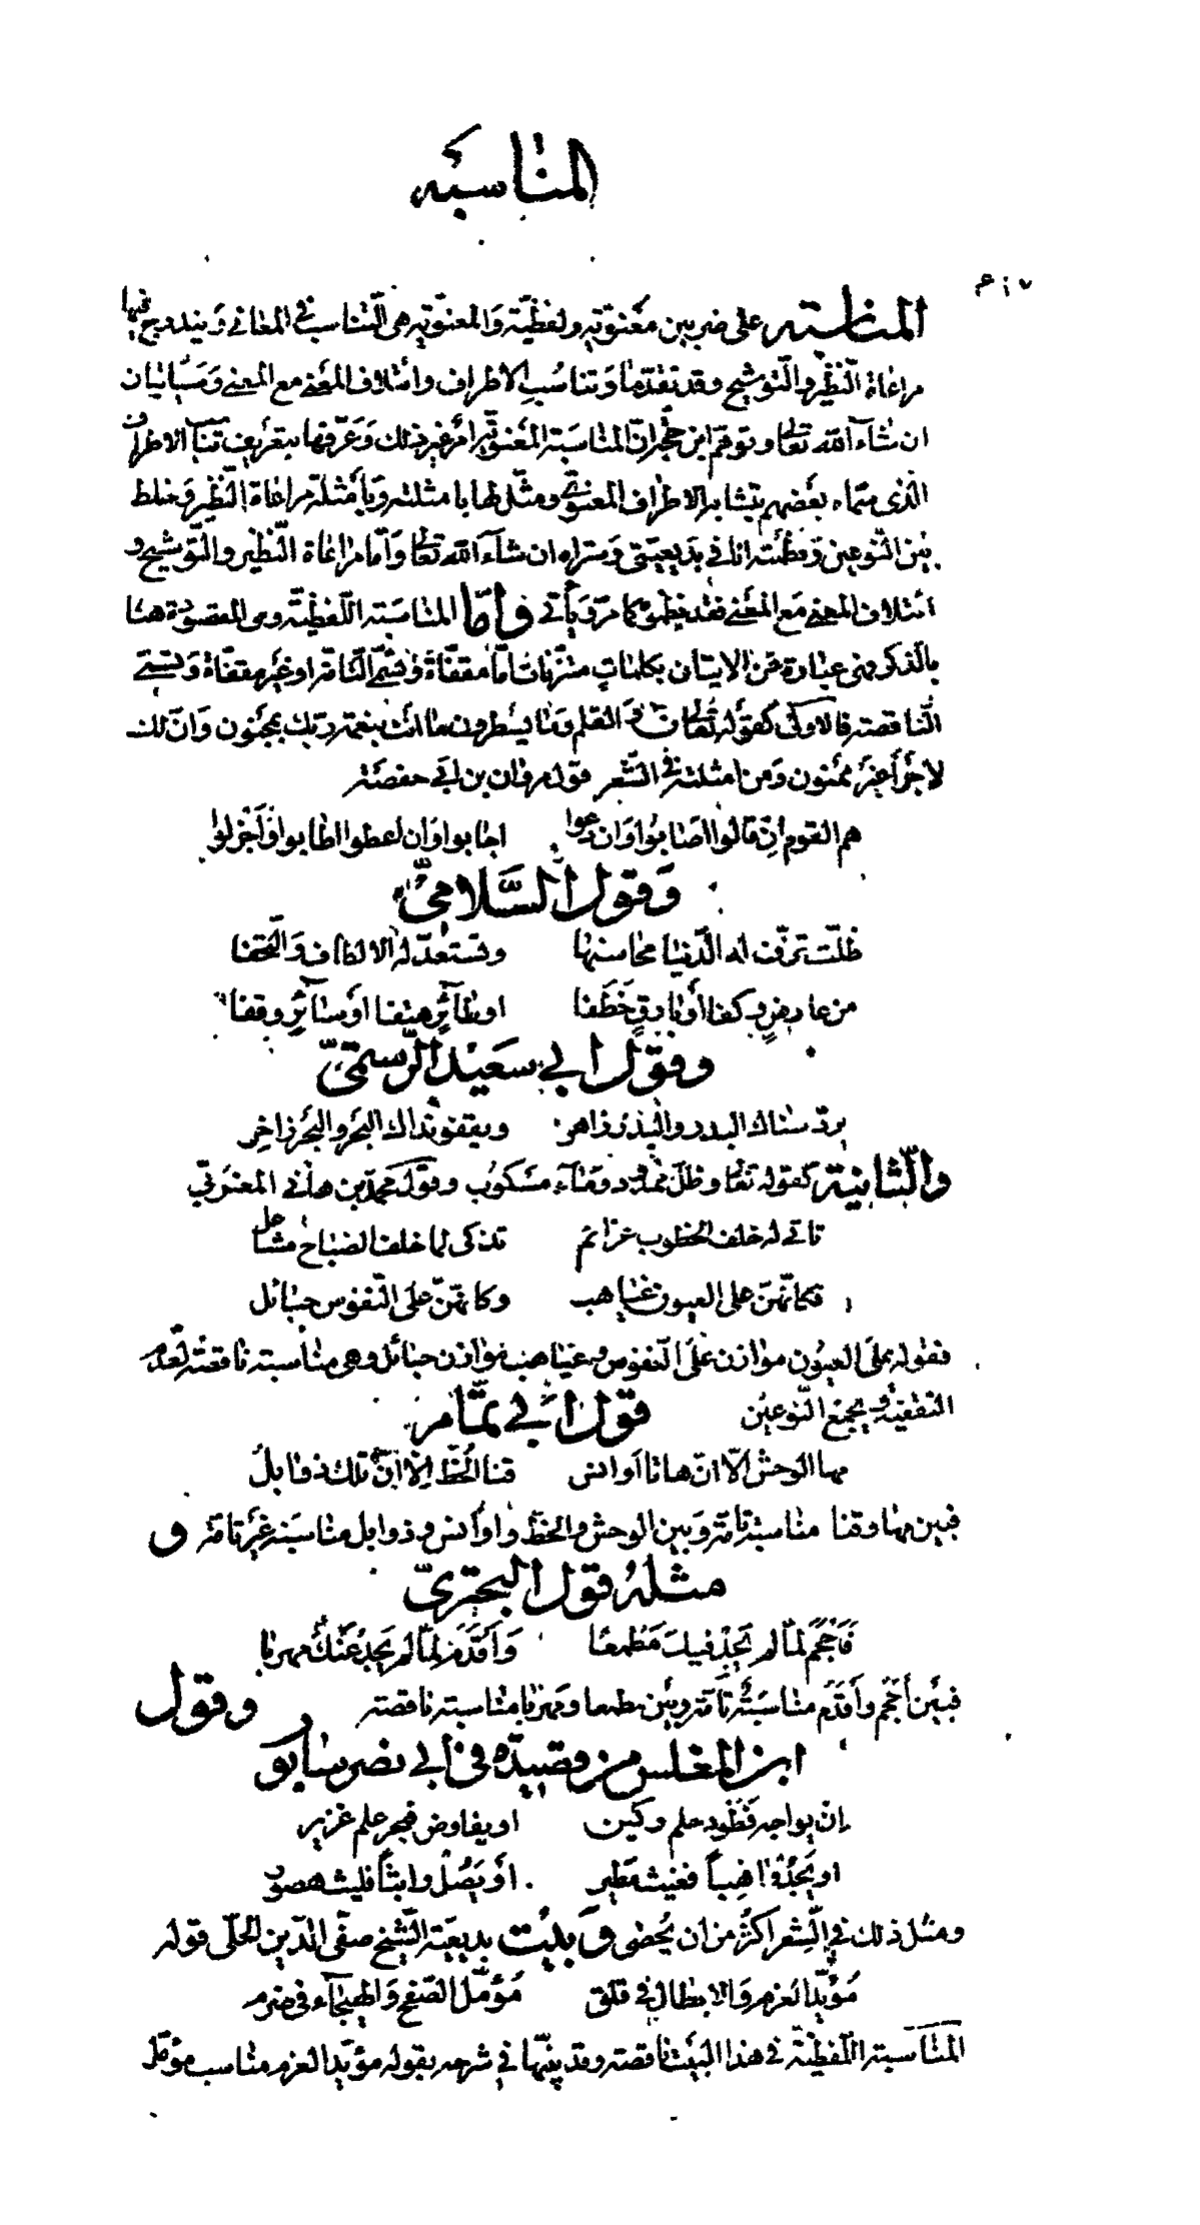 المناسبة
المناسبة على ضربين معنوية ولفظية والمعنوية هي التناسب في المعاني ويندرج فيها
مراعاة النظير والتوشيح وقد تقدما وتناسب الاطراف وائتلاف المعنى مع المعنى وسيأتيان
ان شاء الله تعالى وتوهم ابن حجة ان المناسبة المعنوية امر غير ذلك وعرفها بتعريف تشابه الاطراف
الذي سماه بعضهم بتشابه الاطراف المعنوي ومثل لها بامثلته وبأمثلة مراعاة النظير وخلط
بين النوعين ونظمته انا في بديعيتي وستراه ان شاء الله تعالى وأما مراعاة النظير والتوشيح و
ائتلاف المعنى مع المعنى فقد نظموها كما مر ويأتي وأما المناسبة اللفظية وهي المقصودة هنا
بالذكر فهي عبارة عن الاتيان بكلمات متزنات اما مقفاة وتسمى التامة او غير مقفاة وتسمى
الناقصة فالاولى كقوله تعالى ن والقلم وما يسطرون ما انت بنعمة ربك بمجنون وان لك
لاجرا غير ممنون ومن امثلته في الشعر قول مروان بن ابي حفصة
هم القوم ان قالوا اصابوا وان دعوا اجابوا وان اعطوا اطابوا واجزلوا
وقول السلامي
ظلت تزف له الدنيا محاسنها وتستعد له الالطاف والتحفا
من عارض وكفا أو بارق خطفا او طائر هتفا او سائر وقفا
وقول ابي سعيد الرستمي
يرد سناك البدر والبدر زاهر ويقفو نداك البحر والبحر زاخر
والثانية كقوله تعالى وظل ممدود وماء مسكوب وقول محمد بن هاني المغربي
تاتي له خلف الخطوب عزائم تذكى لها خلف الصباح مشاعل
فكانهن على العيون غياهب وكانهن على النفوس حبائل
فقوله على العيون موازن على النفوس وغياهب موازن حبائل وهي مناسبة ناقصة لعدم
التقفية ويجمع النوعين قول ابي تمام
مها الوحش الا ان هاتا اوانس قنا الخط الا ان تلك ذوابل
فبين مها وقنا مناسبة تامة وبين الوحش والخط واوانس وذوابل مناسبة غير تامة و
مثله قول البحتري
فأحجم لما لم يجد فيك مطمعا وأقدم لما لم يجد عنك مهربا
فبين أحجم وأقدم مناسبة تامة وبين مطمعا ومهربا مناسبة ناقصة وقول
ابن المغلس من قصيدة في أبي نصر سابور
إن يواجه فطود حلم ركين او يفاوض فبحر علم غزير
او يجد واهبا فغيث مطير او يصل واثبا فليث هصور
ومثل ذلك في الشعر اكثر من ان يحصى وبيت بديعية الشيخ صفي الدين الحلي قوله
مؤيد العزم والابطال في قلق مؤمل الصفح والهيجاء في ضرم
المناسبة اللفظية في هذا البيت ناقصة وقد بينها في شرحه بقوله مؤيد العزم مناسب مؤمل